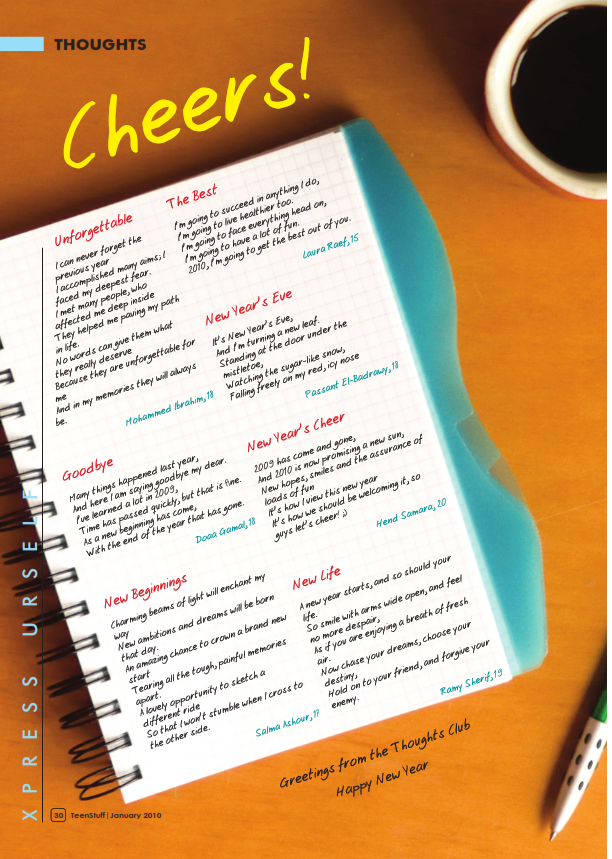 THOUGHTS
Cheers!
Unforgettable
I can never forget the
previous year
I accomplished many aims; I
faced my deepest fear.
I met many people, who
affected me deep inside
They helped me paving my path
in life.
No words can give them what
they really deserve
Because they are unforgettable for
me
And in my memories they will always
be.
Mohammed Ibrahim, 18
The Best
I'm going to succeed in anything I do,
I'm going to live healthier too.
I'm going to face everything head on,
I'm going to have a lot of fun.
2010, I'm going to get the best out of you.
Laura Raef, 15
New Year's Eve
It's New Year's Eve,
And I'm turning a new leaf.
Standing at the door under the
mistletoe,
Watching the sugar-like snow,
Falling freely on my red, icy nose
Passant El-Badrawy, 18
Goodbye
Many things happened last year,
And here I am saying goodbye my dear.
I've learned a lot in 2009,
Time has passed quickly, but that is fine.
As a new beginning has come,
With the end of the year that has gone.
Doaa Gamal, 18
New Year's Cheer
2009 has come and gone,
And 2010 is now promising a new sun,
New hopes, smiles and the assurance of
loads of fun
It's how I view this new year
It's how we should be welcoming it, so
guys let's cheer! ;)
Hend Samara, 20
New Beginnings
Charming beams of light will enchant my
way
New ambitions and dreams will be born
that day.
An amazing chance to crown a brand new
start
Tearing all the tough, painful memories
apart.
A lovely opportunity to sketch a
different ride
So that I won't stumble when I cross to
the other side.
Salma Ashour, 17
New Life
A new year starts, and so should your
life.
So smile with arms wide open, and feel
no more despair,
As if you are enjoying a breath of fresh
air.
Now chase your dreams, choose your
destiny,
Hold on to your friend, and forgive your
enemy.
Ramy Sherif, 19
Greetings from the Thoughts Club
Happy New Year
XPRESS URSELF
30 TeenStuff | January 2010